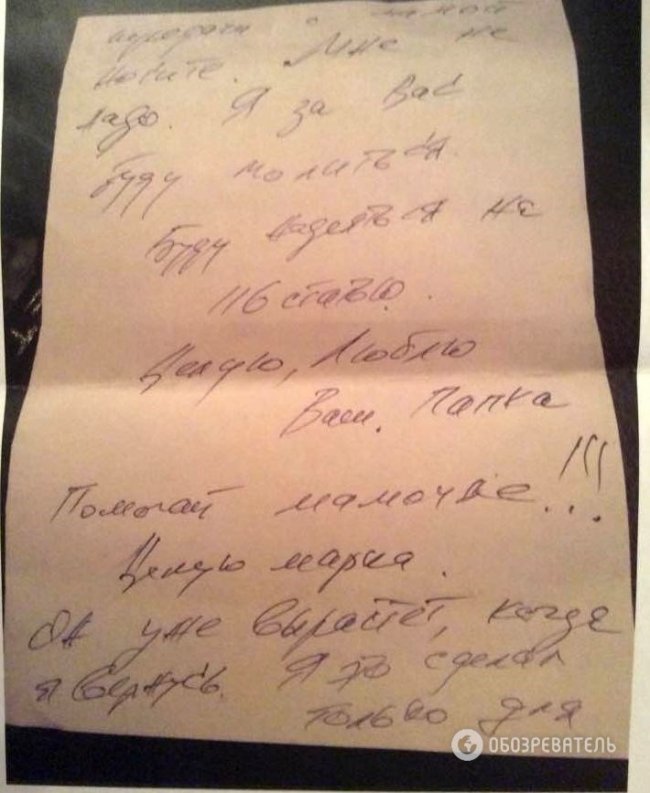 передачи с мамой
носите. Мне не
надо. Я за Вас
буду молиться.
Буду надеяться на
116 статью.
Целую, Люблю
Ваш. Папка
Помогай мамочке...!!!
Целую марка.
Он уже вырастет, когда
я вернусь. Я это сделал
только для
ОБОЗРЕВАТЕЛЬ